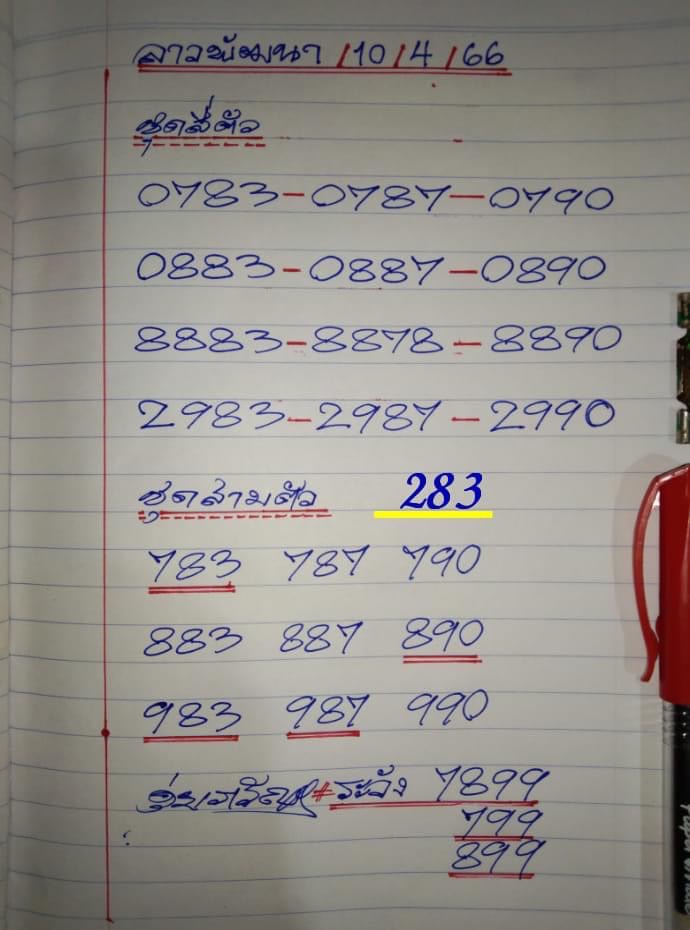 ลาวพัฒนา /10/4/66
ชุดสี่ตัว
0783-0787-0790
0883-0887-0890
8883-8878-8890
2983-2987-2990
ชุดสามตัว 283
783 787 790
883 887 890
983 987 990
#ระวัง 7899
799
899